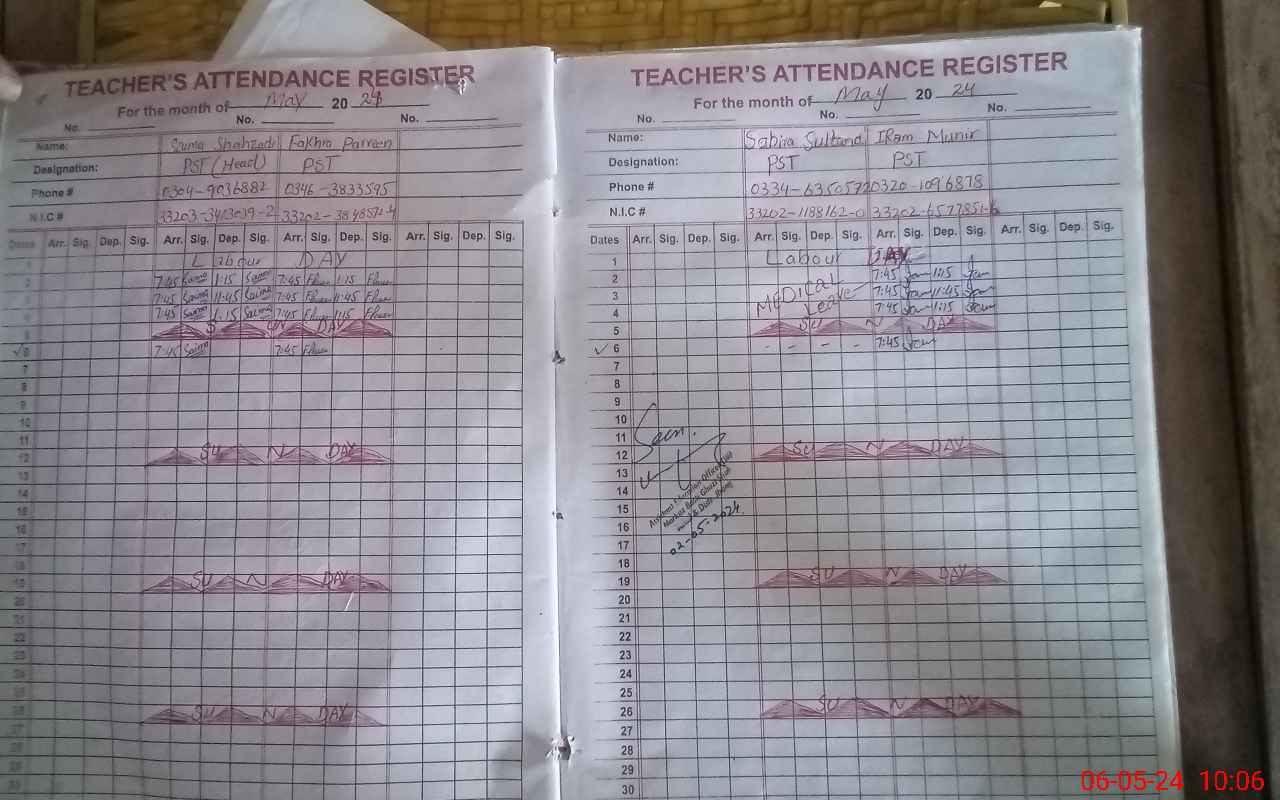 TEACHER'S ATTENDANCE REGISTER
For the month of May 20 24
No. No. No.
Name: Saima Shahzadi Fakhra Parveen
Designation: PST (Head) PST
Phone # 0304-9036882 0346-3833595
N.I.C # 33203-3413039-2 33202-3848572-4
Dates Arr. Sig. Dep. Sig. Arr. Sig. Dep. Sig. Arr. Sig. Dep. Sig.
1 Labour DAY
2 7:45 Saima 1:15 Saima 7:45 1:15
3 7:45 Saima 11:45 Saima 7:45 11:45
4 7:45 Saima 1:15 Saima 7:45 1:15
5 SUN DAY
✓6 7:45 Saima 7:45
7
8
9
10
11
12 SU N DAY
13
14
15
16
17
18
19 SU N DAY
20
21
22
23
24
25
26 SU N DAY
27
28
29
30
TEACHER'S ATTENDANCE REGISTER
For the month of May 20 24
No. No. No.
Name: Sabira Sultana IRam Munir
Designation: PST PST
Phone # 0334-6350572 0320-1096878
N.I.C # 33202-1188162-0 33202-6577851-6
Dates Arr. Sig. Dep. Sig. Arr. Sig. Dep. Sig. Arr. Sig. Dep. Sig.
1 Labour DAY
2 7:45 1:15
3 MEDICAL Leave 7:45 11:45
4 7:45 1:15
5 SU N DAY
✓ 6 - - - - 7:45
7
8
9
10
11 Seen.
12 SU N DAY
13
14
15 Assistant Education Officer
16
17 02-05-2024
18
19 SU N DAY
20
21
22
23
24
25
26 SU N DAY
27
28
29
30
06-05-24 10:06